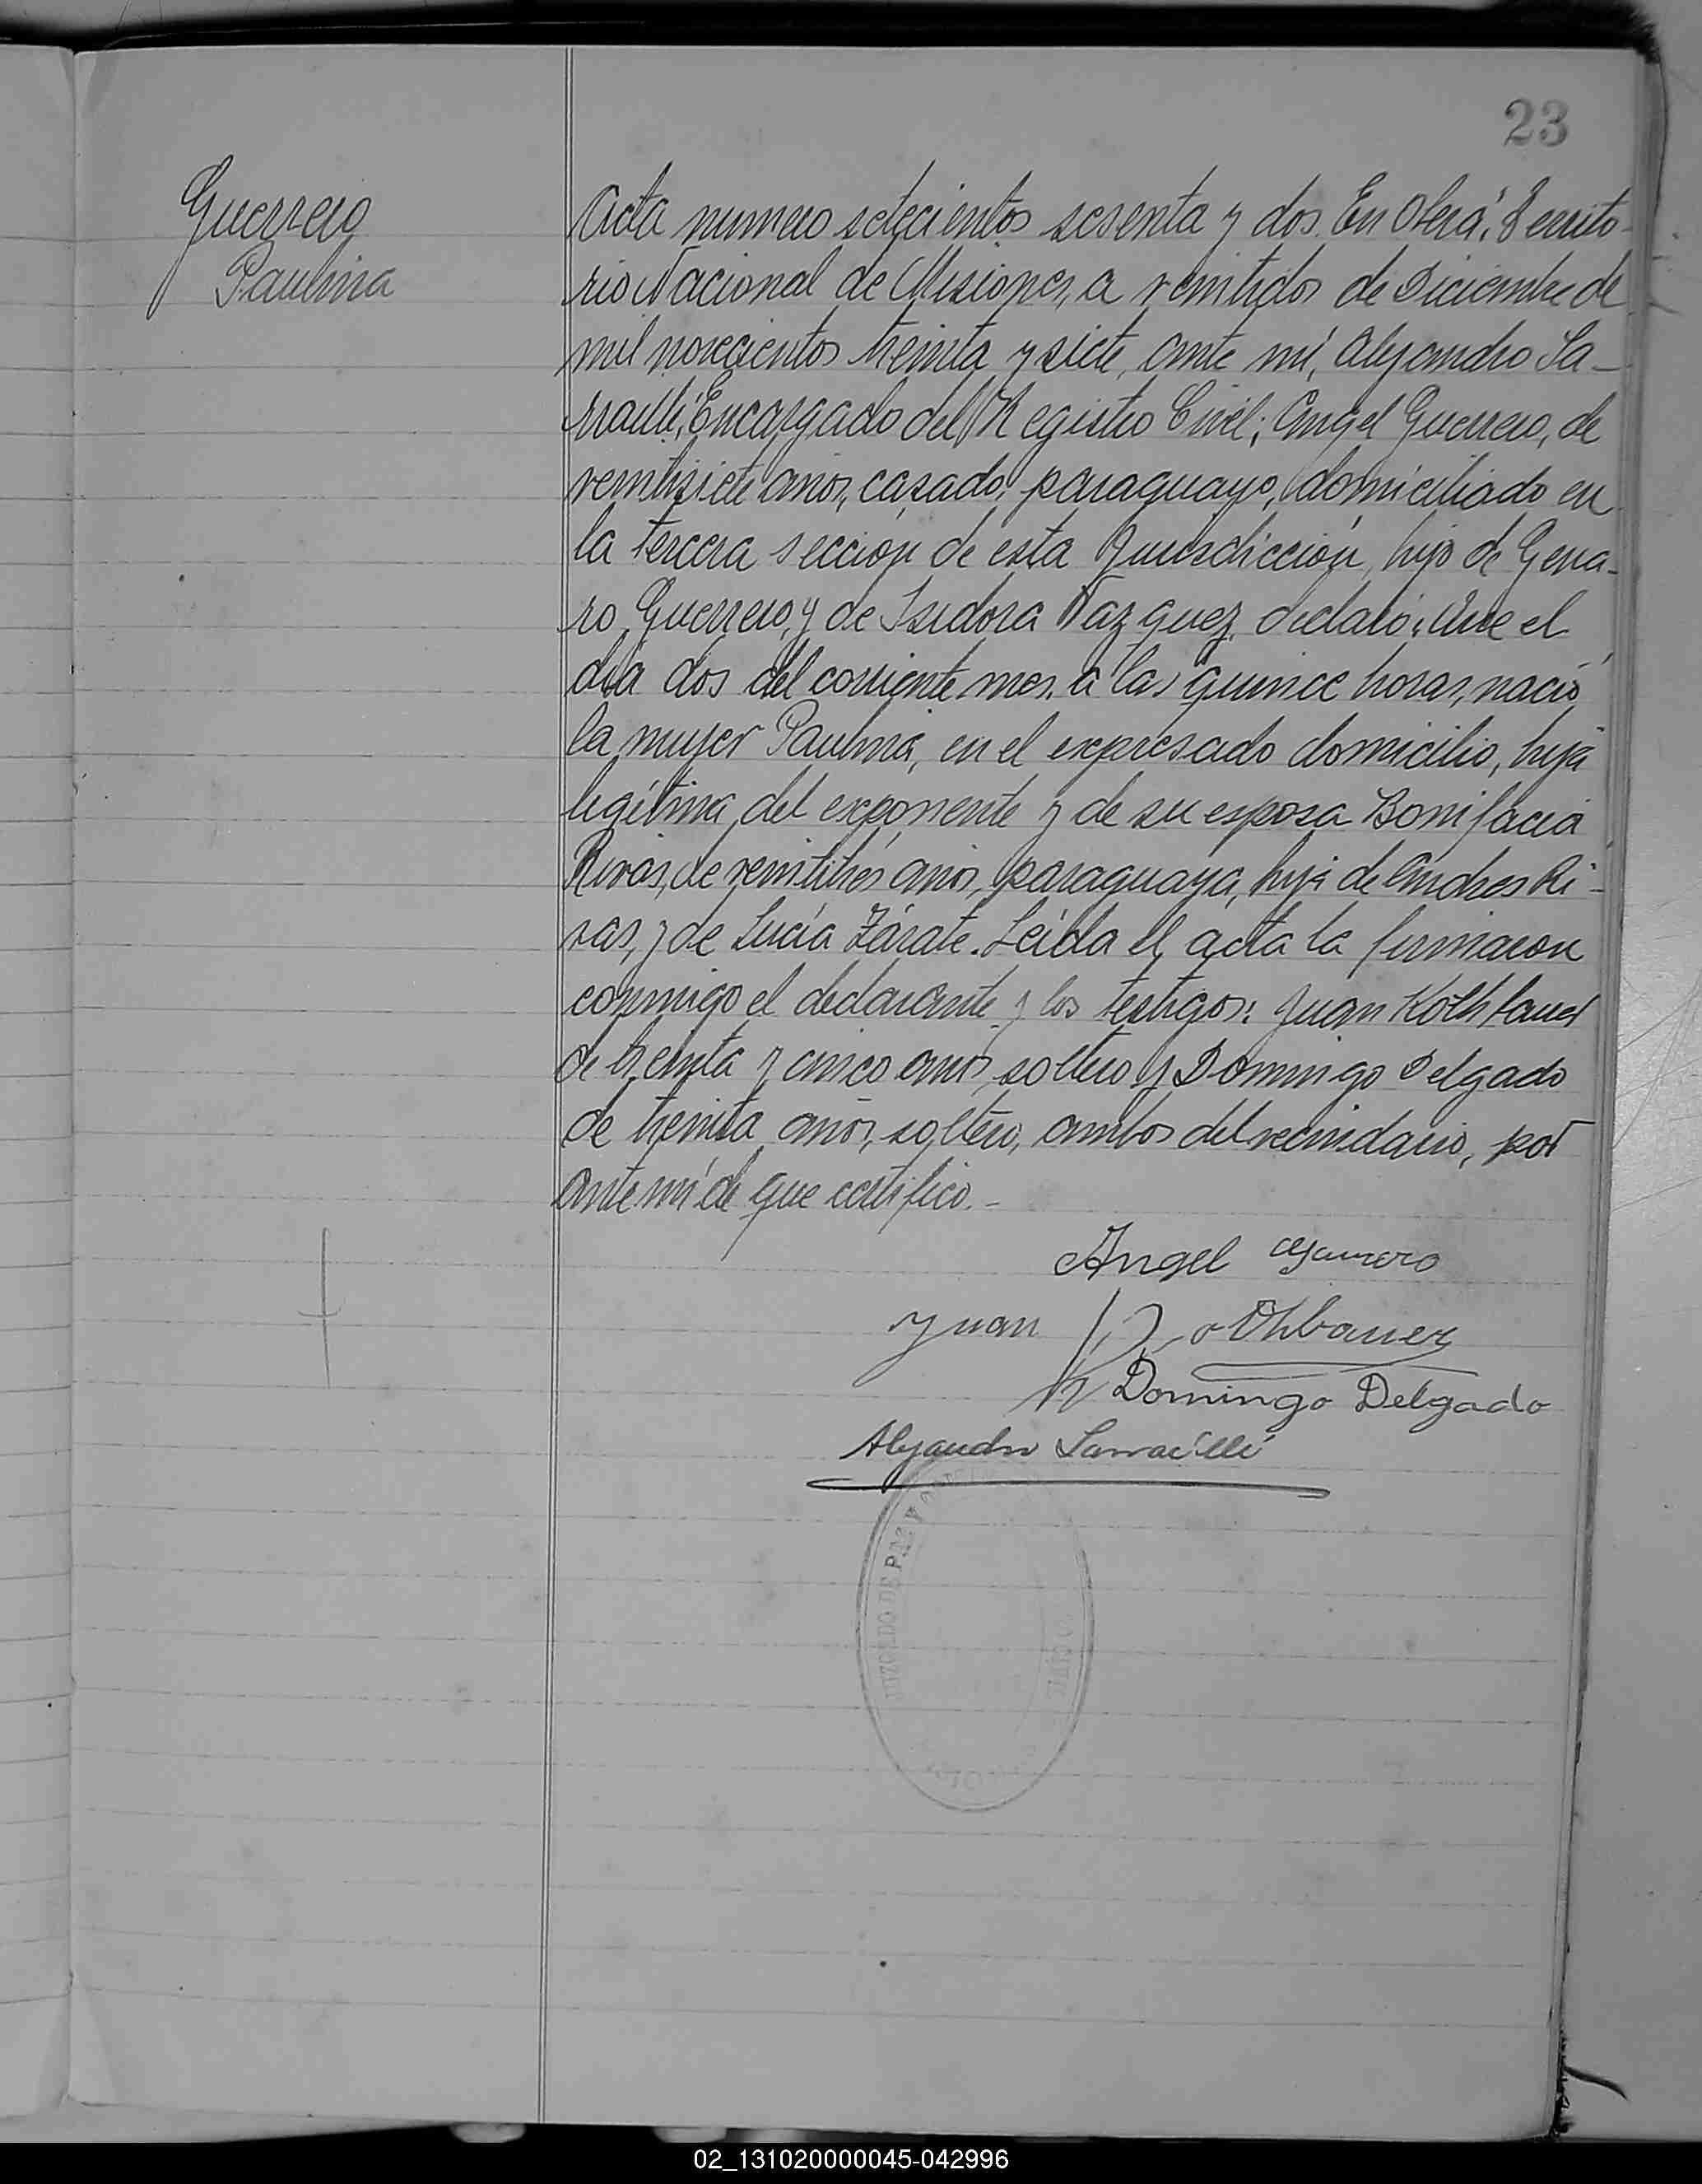 23
Guerrero
Paulina
Acta numero setecientos sesenta y dos. En Oberá, Territo-
rio Nacional de Misiones, a veintidos de Diciembre de
mil novecientos treinta y siete, ante mí, Alejandro Sa-
rraillé, Encargado del Registro Civil; Angel Guerrero, de
veintisiete años, casado, paraguayo, domiciliado en
la tercera sección de esta Jurisdicción, hijo de Gena-
ro Guerrero, y de Isidora Vazquez, declaró: Que el
día dos del corriente mes, a las quince horas, nació
la mujer Paulina, en el expresado domicilio, hija
legítima del exponente y de su esposa Bonifacia
Rivas, de veintitrés años, paraguaya, hija de Andres Ri-
vas, y de Lucía Zárate. Leída el acta la firmaron
conmigo el declarante y los testigos: Juan
de treinta y cinco años, soltero y Domingo Delgado
de treinta años, soltero, ambos del vecindario, por
ante mí de que certifico.-
Angel Guerrero
Juan
Domingo Delgado
Alejandro Sarraillé
JUZGADO DE PAZ Y
02_131020000045-042996